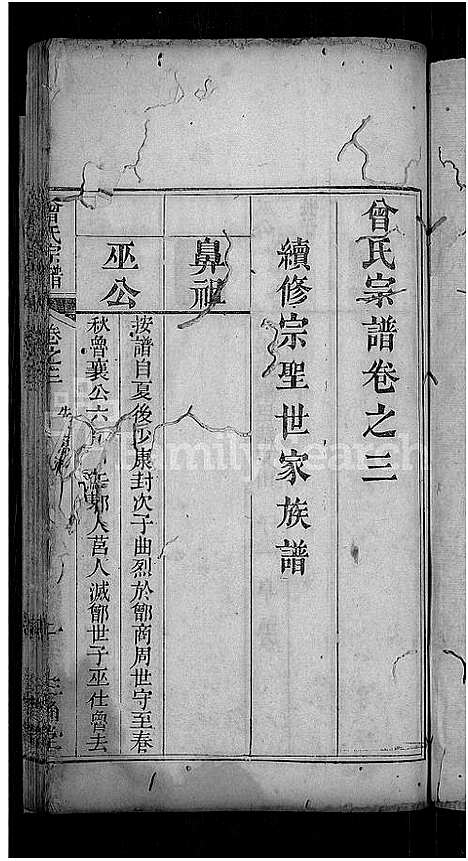 曾氏宗譜卷之三
續修宗聖世家族譜
鼻祖
巫公
按譜自夏後少康封次子曲烈於鄫商周世守至春
秋魯襄公六年邾人莒人滅鄫世子巫仕魯去
曾氏宗譜
卷之三
FamilySearch